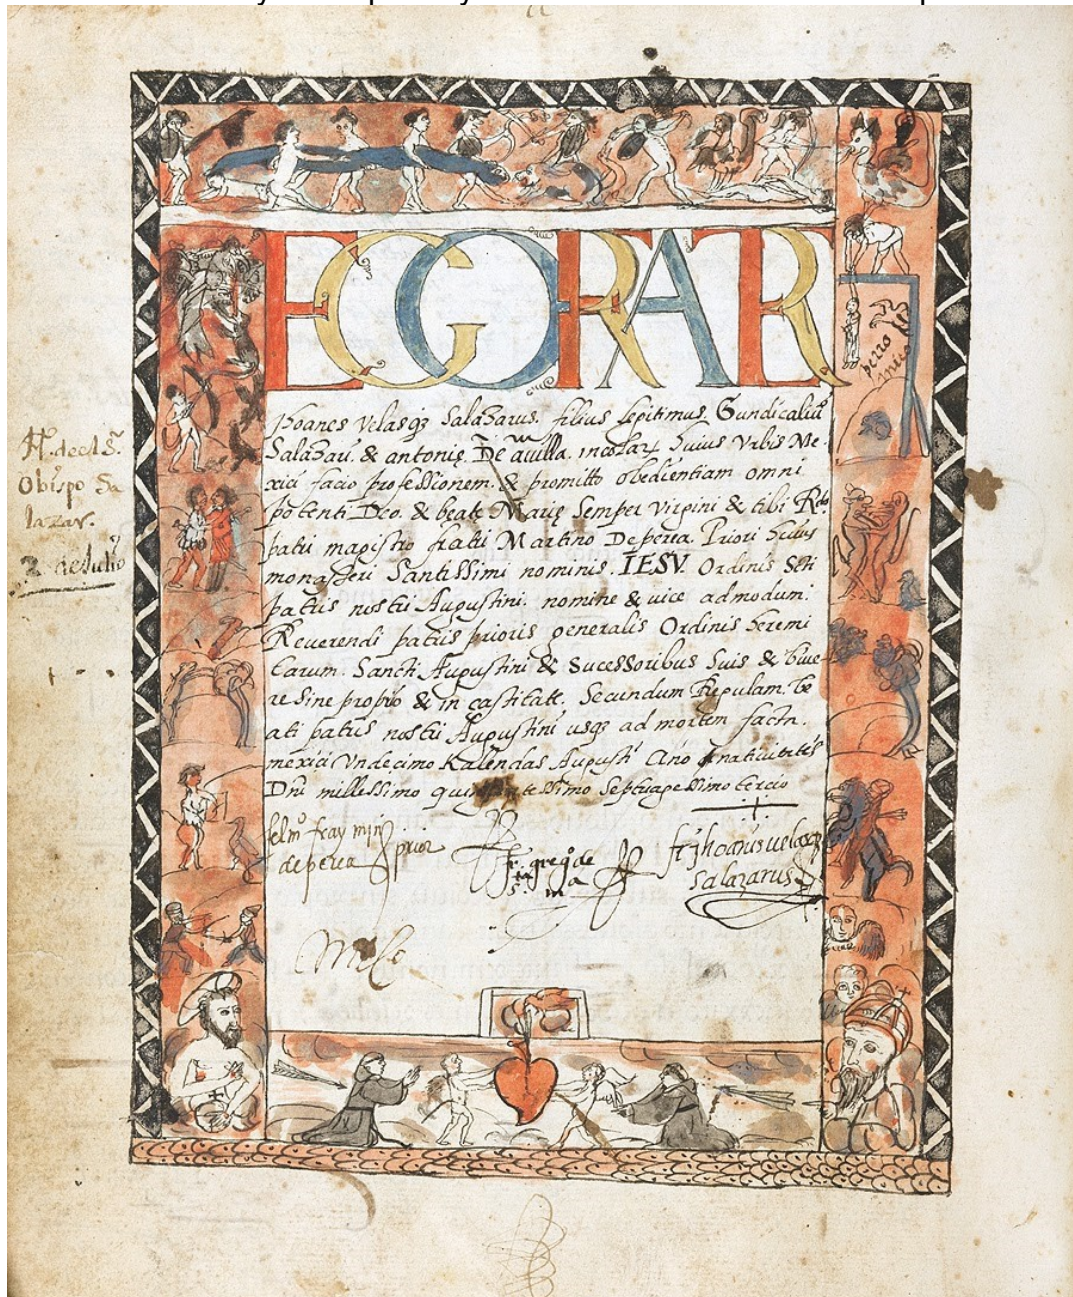 EGO FRATER
Ihoanes Velasqz Salazarus. filius legitimus. Gundisalui
Salazari. & antonię. De auilla. incolarum huius Vrbis Me
xici facio professionem. & promitto obedientiam omni
potenti Deo. & beatę Marię semper virgini & tibi Rdo
patri magistro fratri Martino De perea. Priori huius
monasteri Santissimi nominis. IESV. Ordinis Scti
patris nostri Augustini. nomine & uice admodum.
Reverendi patris prioris generalis Ordinis heremi
tarum. Sancti Augustini & sucessoribus suis & biue
re sine proprio & in castitate. Secundum Regulam. be
ati patris nostri Augustini usqz ad mortem facta.
mexici Vndecimo Kalendas Augusti Año nativitatis
Dñi millessimo quingentessimo septuagessimo tercio
fray min
de perea prior
fr. gregº de
sta ma
fr jhoanis uelazqz
salazarus
perro
Obispo Sa
lazar.
2 de Julio